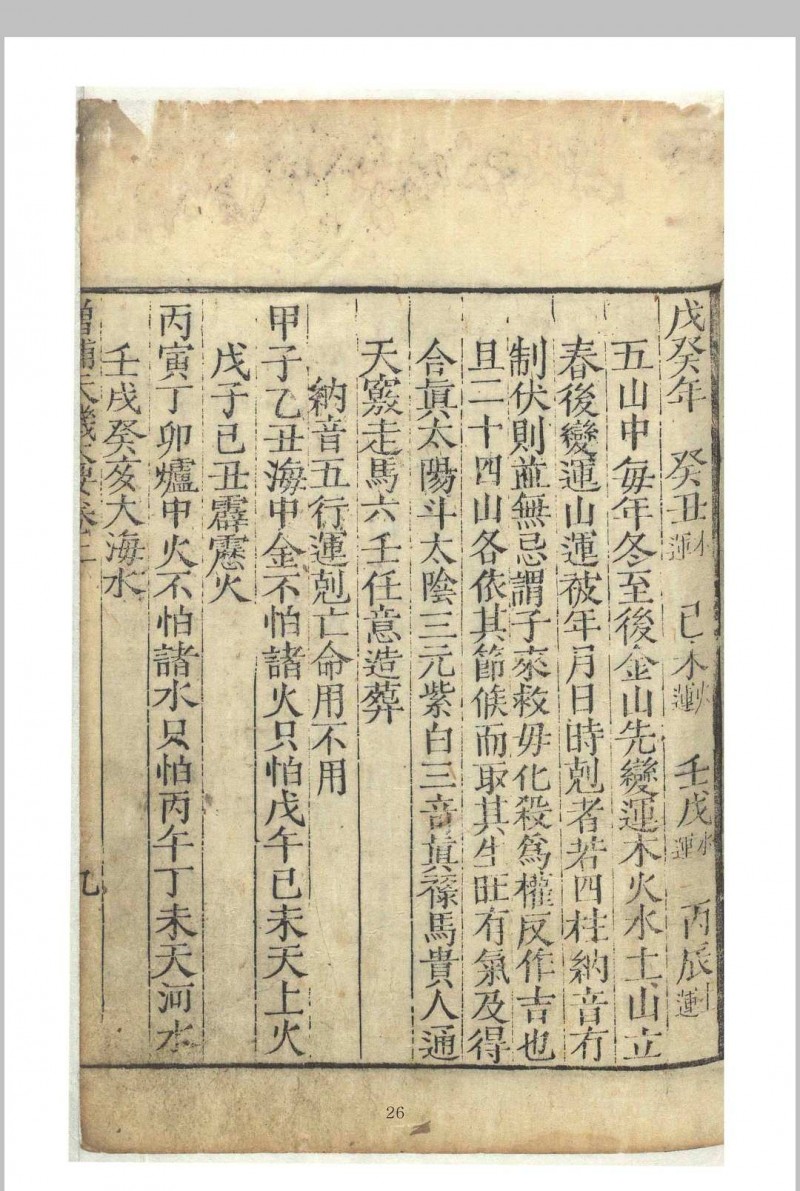 戊癸年 癸丑木運 己未火運 壬戌水運 丙辰運
五山中每年冬至後金山先變運木火水土山立
春後變運山運被年月日時剋者若四柱納音有
制伏則並無忌謂子來救母化殺爲權反作吉也
且二十四山各依其節候而取其生旺有氣及得
合眞太陽斗太陰三元紫白三音眞祿馬貴人通
天竅走馬六壬任意造葬
納音五行運剋亡命用不用
甲子乙丑海中金不怕諸火只怕戊午己未天上火
戊子己丑霹靂火
丙寅丁卯爐中火不怕諸水只怕丙午丁未天河水
壬戌癸亥大海水
增補天機大要卷二 九
26